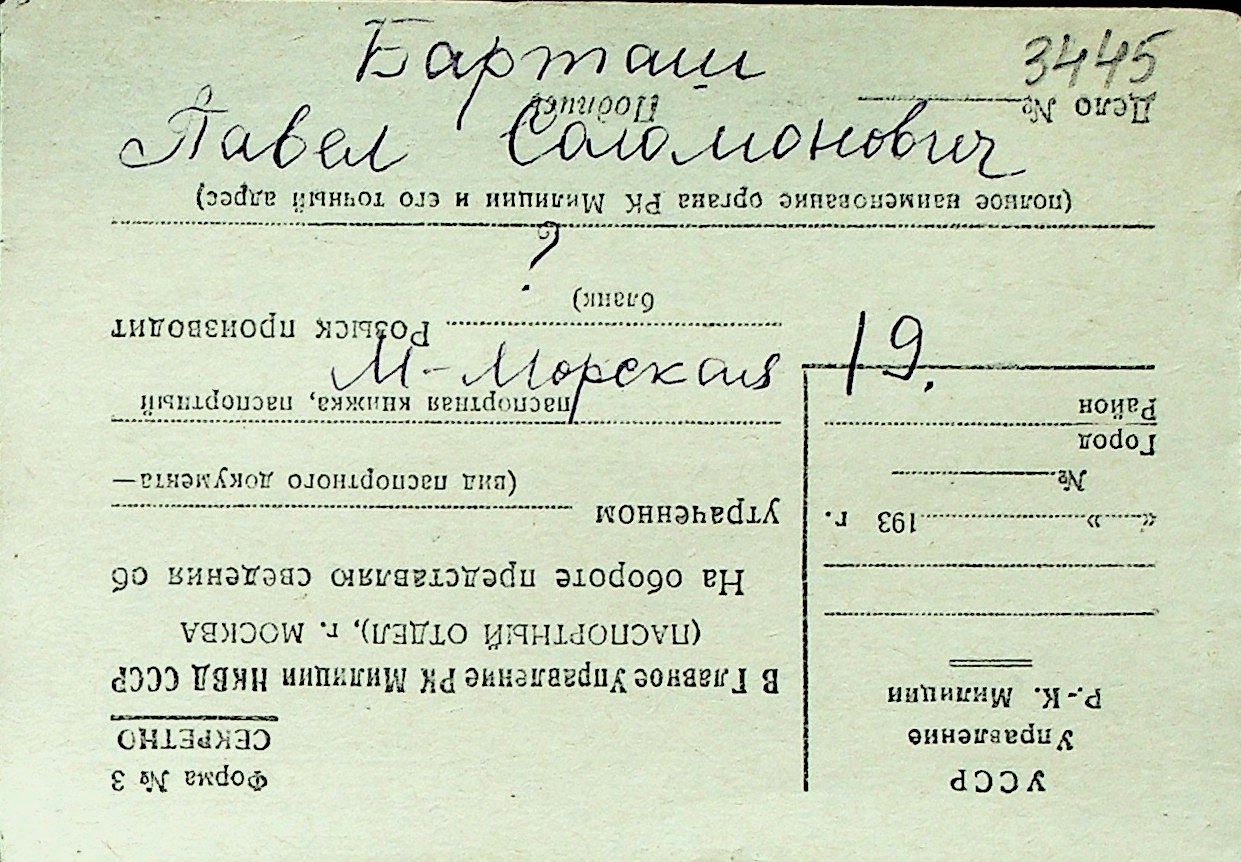 Барташ
3445
Павел Соломонович
?
М-Морская 19.
Форма № 3
СЕКРЕТНО
УССР
Управление
Р.-К. Милиции
« » 193 г.
№
Город
Район
В Главное Управление РК Милиции НКВД СССР
(ПАСПОРТНЫЙ ОТДЕЛ), г. МОСКВА
На обороте представляю сведения об
утраченном
(вид паспортного документа—
паспортная книжка, паспортный
бланк)
Розыск производит
(полное наименование органа РК Милиции и его точный адрес)
Дело №
Подпись